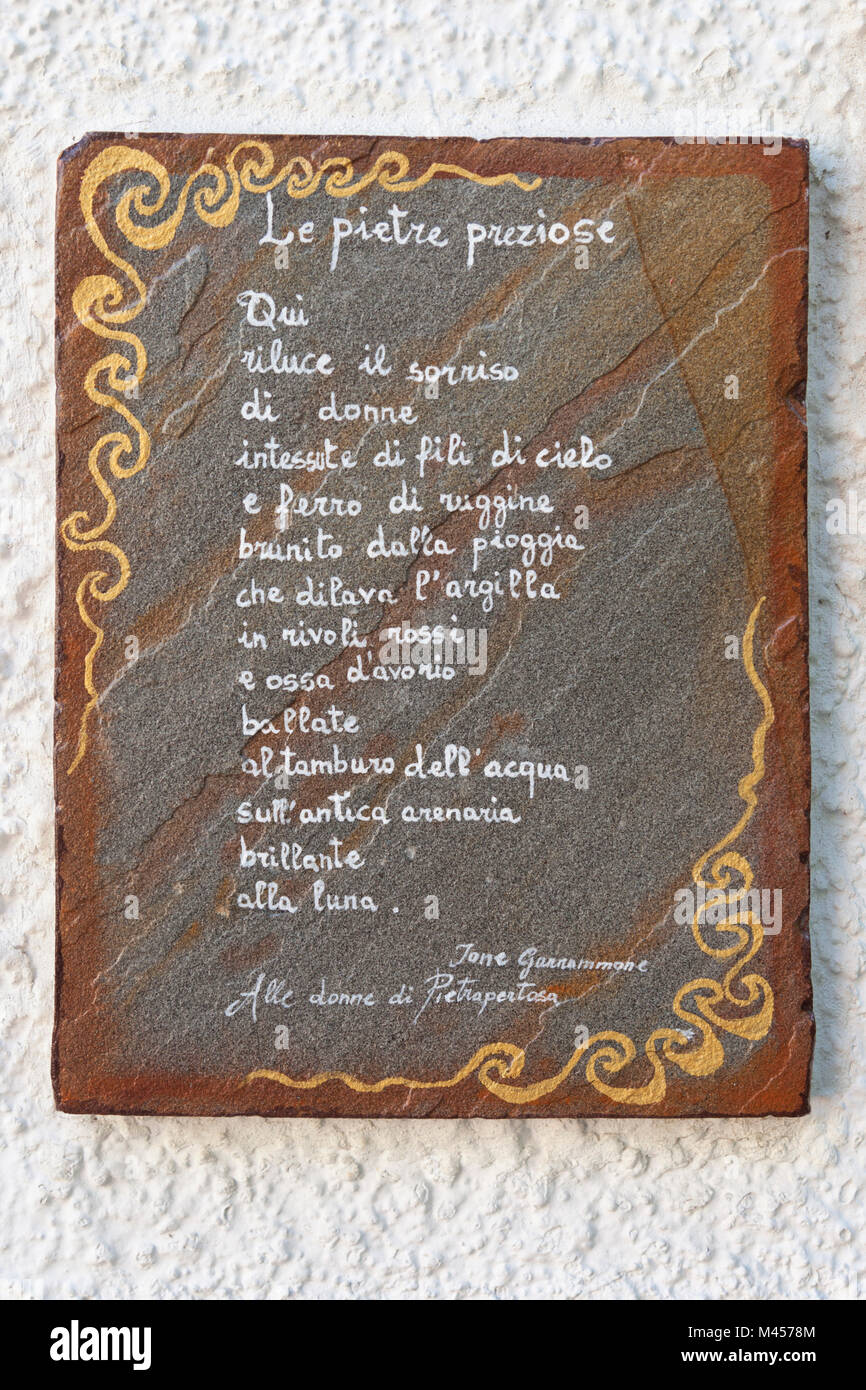 Le pietre preziose
Qui
riluce il sorriso
di donne
intessute di fili di cielo
e ferro di ruggine
brunito dalla pioggia
che dilava l'argilla
in rivoli rossi
e ossa d'avorio
ballate
al tamburo dell'acqua
sull'antica arenaria
brillante
alla luna.
Ione Garrammone
Alle donne di Pietrapertosa
alamy
Image ID: M4578M
www.alamy.com